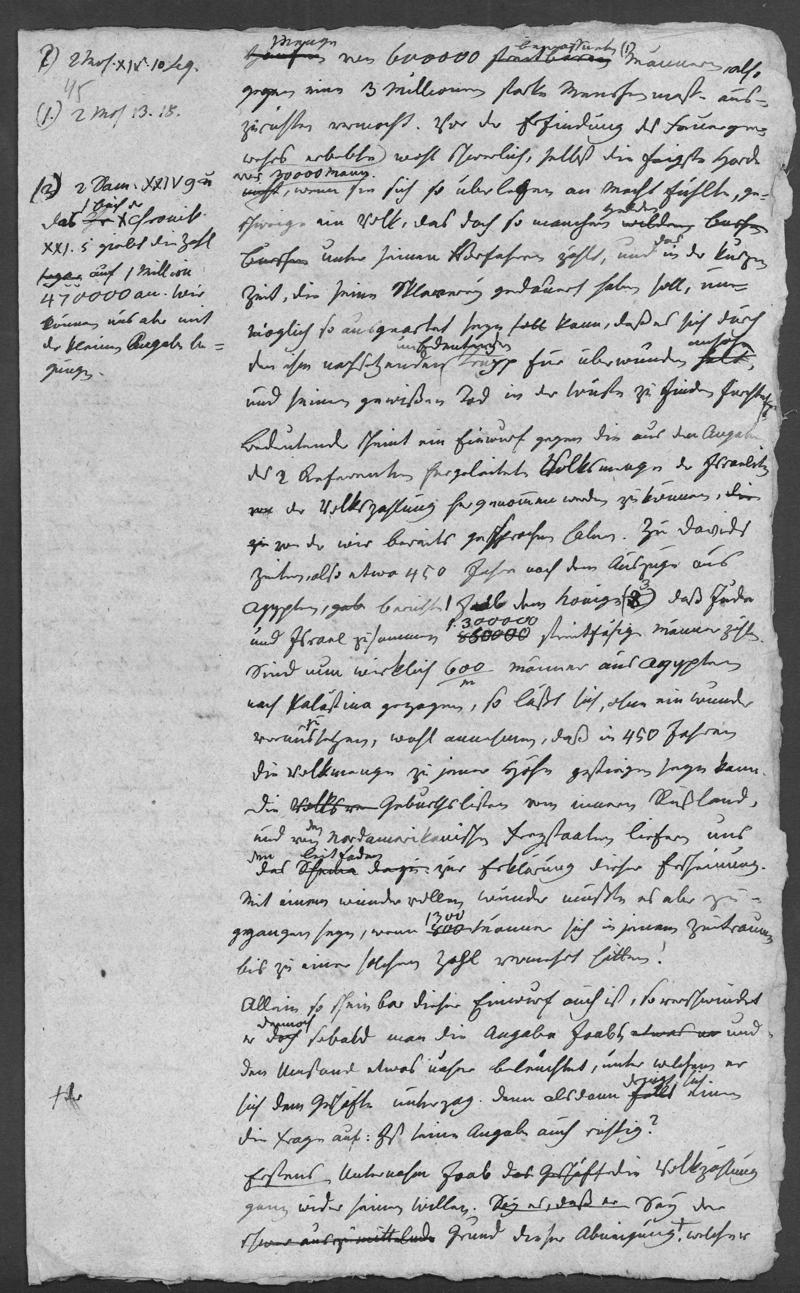 2 Mos. XIV. 10 seq.
45
(1.) 2 Mos 13. 18.
(2) 2 Sam. XXIV 9
das 1 Buch d Chronik.
XXI. 5 giebt die Zahl
sogar auf 1 Million
470000 an. Wir
können uns aber mit
der kleinen Angabe be=
gnügen.
Menge
von 600000 streitbaren bewaffneten (1) Männern, also
gegen eine 3 Millionen starke Menschenmasse aus=
zurichten vermocht. Vor der Erfindung des Feuerge=
wehrs erbebte wohl schwerlich, selbst die feigste Horde
vor 20000 Mann,
nicht, wenn sie sich so überlegen an Macht fühlte, ge=
schweige ein Volk, das doch so manchen wilden
unter seinen Vorfahren zählt, und das in der kurzen
Zeit, die seine Sklaverey gedauert haben soll, un=
möglich so ausgeartet seyn kann, daß es sich durch
den ihm nachsetzenden unbedeutenden Trupp für überwunden ansah,
und seinen gewißen Tod in der Wüste zu finden fürchtete
Bedeutender scheint ein Einwurf gegen die aus den Angaben
der 2 Referenten hergeleitete Volksmenge der Israeliten
von der Volkszählung hergenommen werden zu können, die
von der wir bereits gesprochen haben. Zu Davids
Zeiten, also etwa 450 Jahre nach dem Auszuge aus
Agypten, gab Joab dem Könige (3) daß Juda
und Israel zusammen 1.300000
850000 streitfähige Männer zähle.
Sind nun wirklich 600 m Männer aus Agypten
nach Palästina gezogen, so läßt sich, ohne ein Wunder
vorauszusetzen, wohl annehmen, daß in 450 Jahren
die Volksmenge zu jener Höhe gestiegen seyn kann.
Die Volks Geburthslisten von innern Rußland,
und von den Nordamerikanischen Freystaaten liefern uns
den Leitfaden
das Schema dazu zur Erklärung dieser Erscheinung.
Mit einem wundervollen Wunder müßte es aber zu=
gegangen seyn, wenn 1300
600 Männer sich in jenem Zeitraume
bis zu einer solchen Zahl vermehrt hätten!
Allein so scheinbar dieser Einwurf auch ist, so verschwindet
er dennoch
doch sobald man die Angabe Joabs etwas und
den Umstand etwas näher beleuchtet, unter welchem er
sich dem Geschäfte unterzog. Denn alsdann drängt sich
fällt einem
die Frage auf: Ist seine Angabe auch richtig?
Erstens Unternahm Joab das Geschäft die Volkszählung
ganz wider seinen Willen. Sey es, daß er Sey der
schwer auszumittelnde Grund dieser Abneigung †, welcher
† der